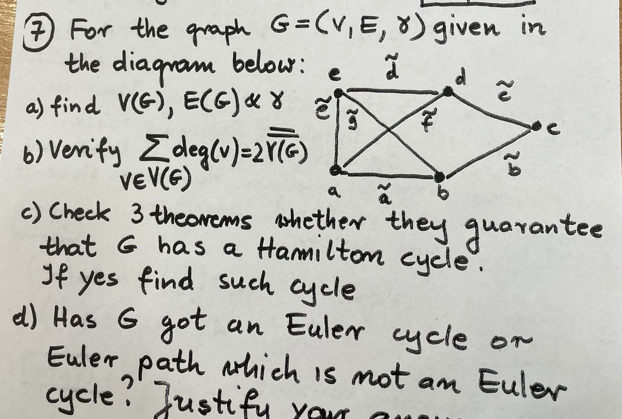 ⑦ For the graph G=(V, E, γ) given in
the diagram below:
a) find V(G), E(G) & γ
b) Verify ∑deg(v)=2γ̿(̿G̿)̿
v∈V(G)
e
d̃
d
c̃
c
ẽ
g̃
f̃
b̃
a
ã
b
c) Check 3 theorems whether they guarantee
that G has a Hamilton cycle.
If yes find such cycle
d) Has G got an Euler cycle or
Euler path which is not an Euler
cycle? Justify your